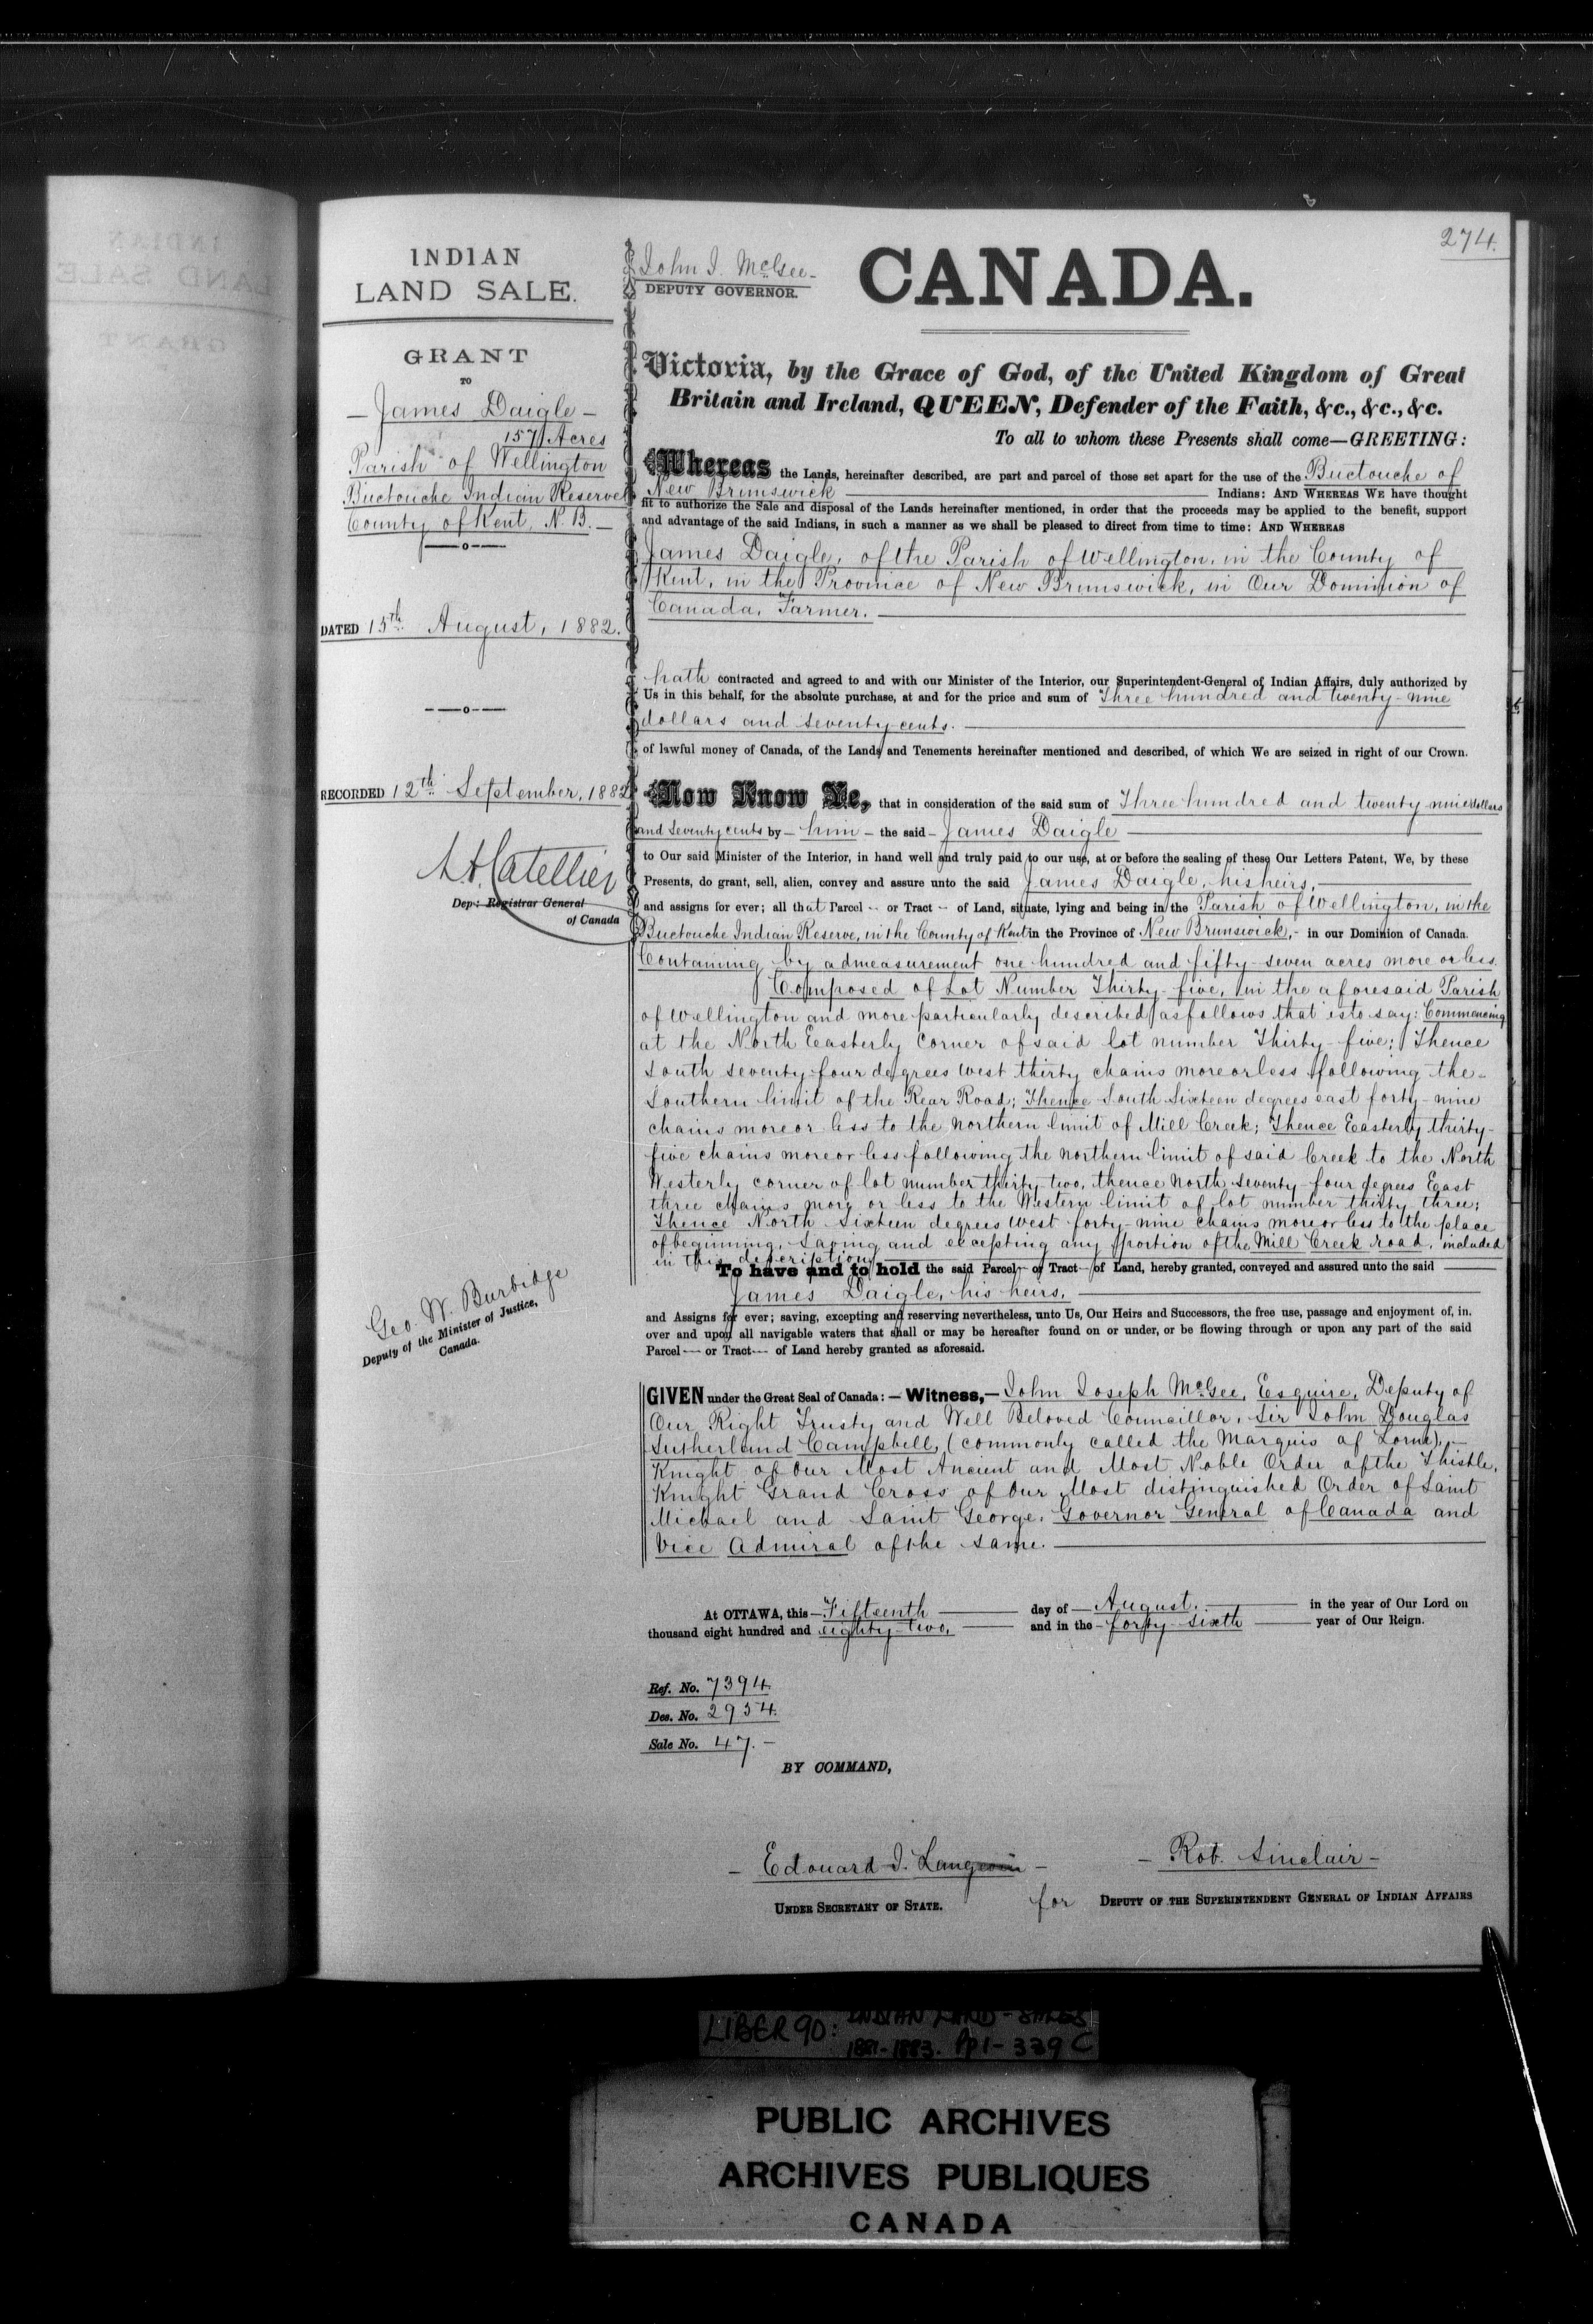 274.
INDIAN
LAND SALE.
GRANT
TO
— James Daigle —
157 Acres
Parish of Wellington
Buctouche Indian Reserve
County of Kent, N. B. —
DATED 15th August, 1882.
RECORDED 12th September, 1882
Dep: Registrar General
of Canada
Geo. W. Burbidge
Deputy of the Minister of Justice,
Canada.
John J. McGee —
DEPUTY GOVERNOR.
CANADA.
Victoria, by the Grace of God, of the United Kingdom of Great
Britain and Ireland, QUEEN, Defender of the Faith, &c., &c., &c.
To all to whom these Presents shall come—GREETING:
Whereas the Lands, hereinafter described, are part and parcel of those set apart for the use of the Buctouche of
New Brunswick Indians: AND WHEREAS WE have thought
fit to authorize the Sale and disposal of the Lands hereinafter mentioned, in order that the proceeds may be applied to the benefit, support
and advantage of the said Indians, in such a manner as we shall be pleased to direct from time to time: AND WHEREAS
James Daigle, of the Parish of Wellington, in the County of
Kent, in the Province of New Brunswick, in Our Dominion of
Canada, Farmer.
hath contracted and agreed to and with our Minister of the Interior, our Superintendent-General of Indian Affairs, duly authorized by
Us in this behalf, for the absolute purchase, at and for the price and sum of Three hundred and twenty-nine
dollars and seventy cents.
of lawful money of Canada, of the Lands and Tenements hereinafter mentioned and described, of which We are seized in right of our Crown.
Now Know Ye, that in consideration of the said sum of Three hundred and twenty nine dollars
and seventy cents by — him — the said — James Daigle
to Our said Minister of the Interior, in hand well and truly paid to our use, at or before the sealing of these Our Letters Patent, We, by these
Presents, do grant, sell, alien, convey and assure unto the said James Daigle, his heirs,
and assigns for ever; all that Parcel -- or Tract -- of Land, situate, lying and being in the Parish of Wellington, in the
Buctouche Indian Reserve, in the County of Kent in the Province of New Brunswick, - in our Dominion of Canada.
Containing by admeasurement one hundred and fifty-seven acres more or less.
Composed of Lot Number Thirty-five, in the aforesaid Parish
of Wellington and more particularly described as follows that is to say: Commencing
at the North Easterly Corner of said lot number Thirty-five; Thence
South seventy four degrees West thirty chains more or less following the
Southern limit of the Rear Road; Thence South Sixteen degrees east forty-nine
chains more or less to the northern limit of Mill Creek; Thence Easterly thirty-
five chains more or less following the northern limit of said Creek to the North
Westerly corner of lot number thirty two, thence North Seventy-four degrees East
three chains more or less to the Western limit of lot number thirty three;
Thence North Sixteen degrees West forty-nine chains more or less to the place
of beginning, Saving and excepting any portion of the Mill Creek road, included
in this description.
To have and to hold the said Parcel— or Tract— of Land, hereby granted, conveyed and assured unto the said
James Daigle, his heirs,
and Assigns for ever; saving, excepting and reserving nevertheless, unto Us, Our Heirs and Successors, the free use, passage and enjoyment of, in.
over and upon all navigable waters that shall or may be hereafter found on or under, or be flowing through or upon any part of the said
Parcel— or Tract— of Land hereby granted as aforesaid.
GIVEN under the Great Seal of Canada: — Witness,— John Joseph McGee, Esquire, Deputy of
Our Right Trusty and Well Beloved Councillor, Sir John Douglas
Sutherland Campbell, (commonly called the Marquis of Lorne),—
Knight of Our Most Ancient and Most Noble Order of the Thistle,
Knight Grand Cross of Our Most distinguished Order of Saint
Michael and Saint George. Governor General of Canada and
Vice Admiral of the same.
At OTTAWA, this — Fifteenth day of — August. in the year of Our Lord on
thousand eight hundred and eighty-two, and in the - forty-sixth year of Our Reign.
Ref. No. 7394.
Des. No. 2954.
Sale No. 47. —
BY COMMAND,
— Edouard J. Langevin —
UNDER SECRETARY OF STATE.
— Rob. Sinclair —
for DEPUTY OF THE SUPERINTENDENT GENERAL OF INDIAN AFFAIRS
LIBER 90: INDIAN LAND-SALES
1881-1883. Pp 1-339 C
PUBLIC ARCHIVES
ARCHIVES PUBLIQUES
CANADA